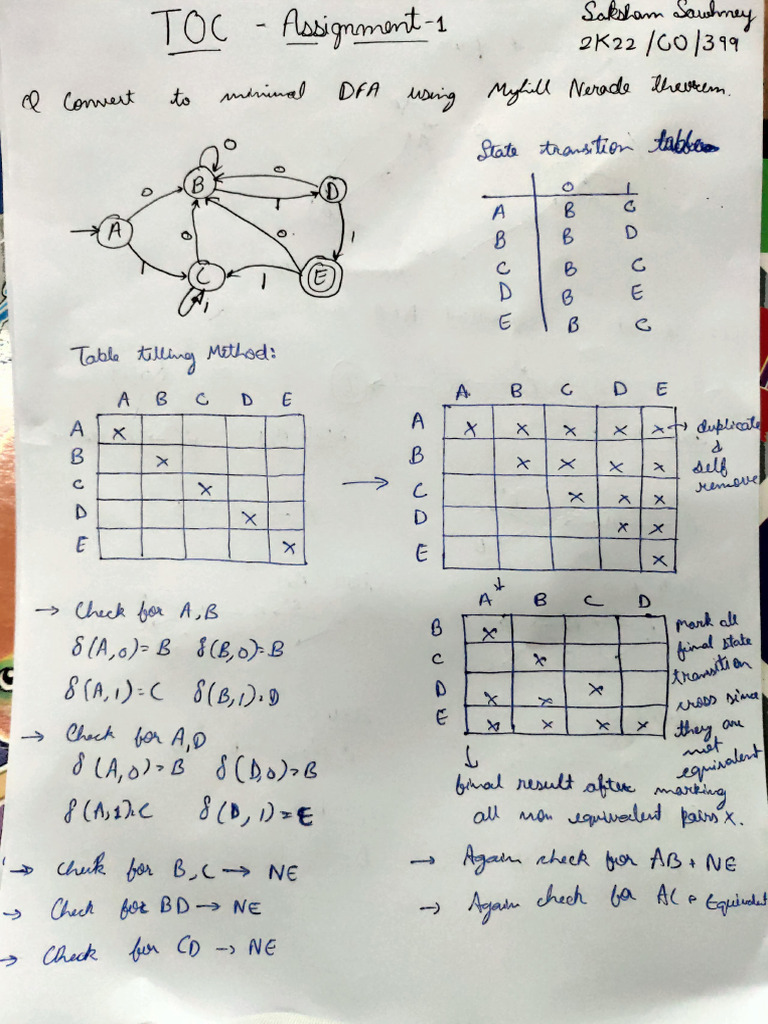 TOC - Assignment-1
Saksham Sawhney
2K22/CO/399
Q Convert to minimal DFA using Myhill Nerode theorem.
State transition table
0 1
A B C
B B D
C B C
D B E
E B C
0
B
0
D
0
1
A
0
0
1
1
C
1
E
1
Table filling Method:
A B C D E
A X
B X
C X
D X
E X
A B C D E
A X X X X X → duplicate
B X X X X & self
C X X X remove
D X X
E X
→ Check for A,B
δ(A,0)=B δ(B,0)=B
δ(A,1)=C δ(B,1)=D
→ Check for A,D
δ(A,0)=B δ(D,0)=B
δ(A,1)=C δ(D,1)=E
→ Check for B,C → NE
→ Check for BD → NE
→ Check for CD → NE
A B C D
B X
C X
D X X X
E X X X X
mark all
final state
transition
cross since
they are
not
equivalent
final result after marking
all non equivalent pairs X.
→ Again check for AB → NE
→ Again check for AC → Equivalent